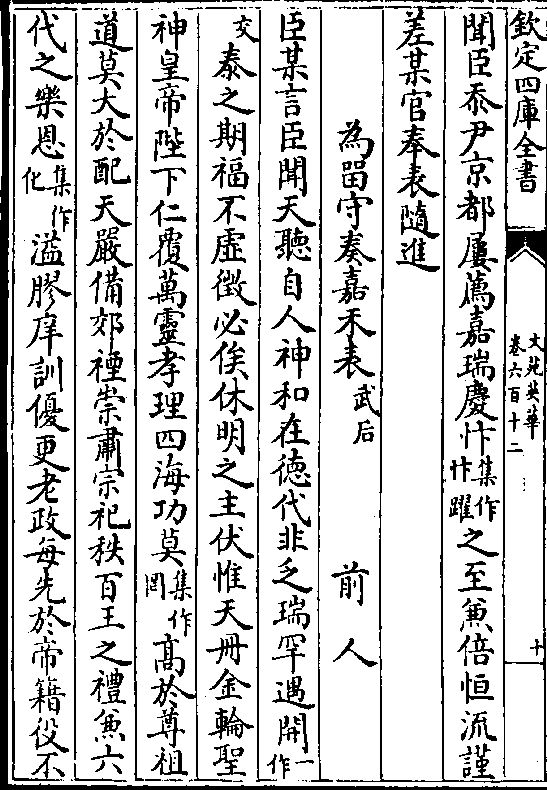 欽定四庫全書
文苑英華
卷六百十二
十
聞臣忝尹京都屢薦嘉瑞慶忭集作忭躍之至兼倍恒流謹
差某官奉表隨進
為留守奏嘉禾表武后 前人
臣某言臣聞天聽自人神和在德代非乏瑞罕遇開一作
交泰之期福不虛徴必俟休明之主伏惟天冊金輪聖
神皇帝陛下仁覆萬靈孝理四海功莫集作罔髙於尊祖
道莫大於配天嚴備郊禋崇肅宗祀秩百王之禮兼六
代之樂恩集作化溢膠庠訓優更老政每先於帝籍役不